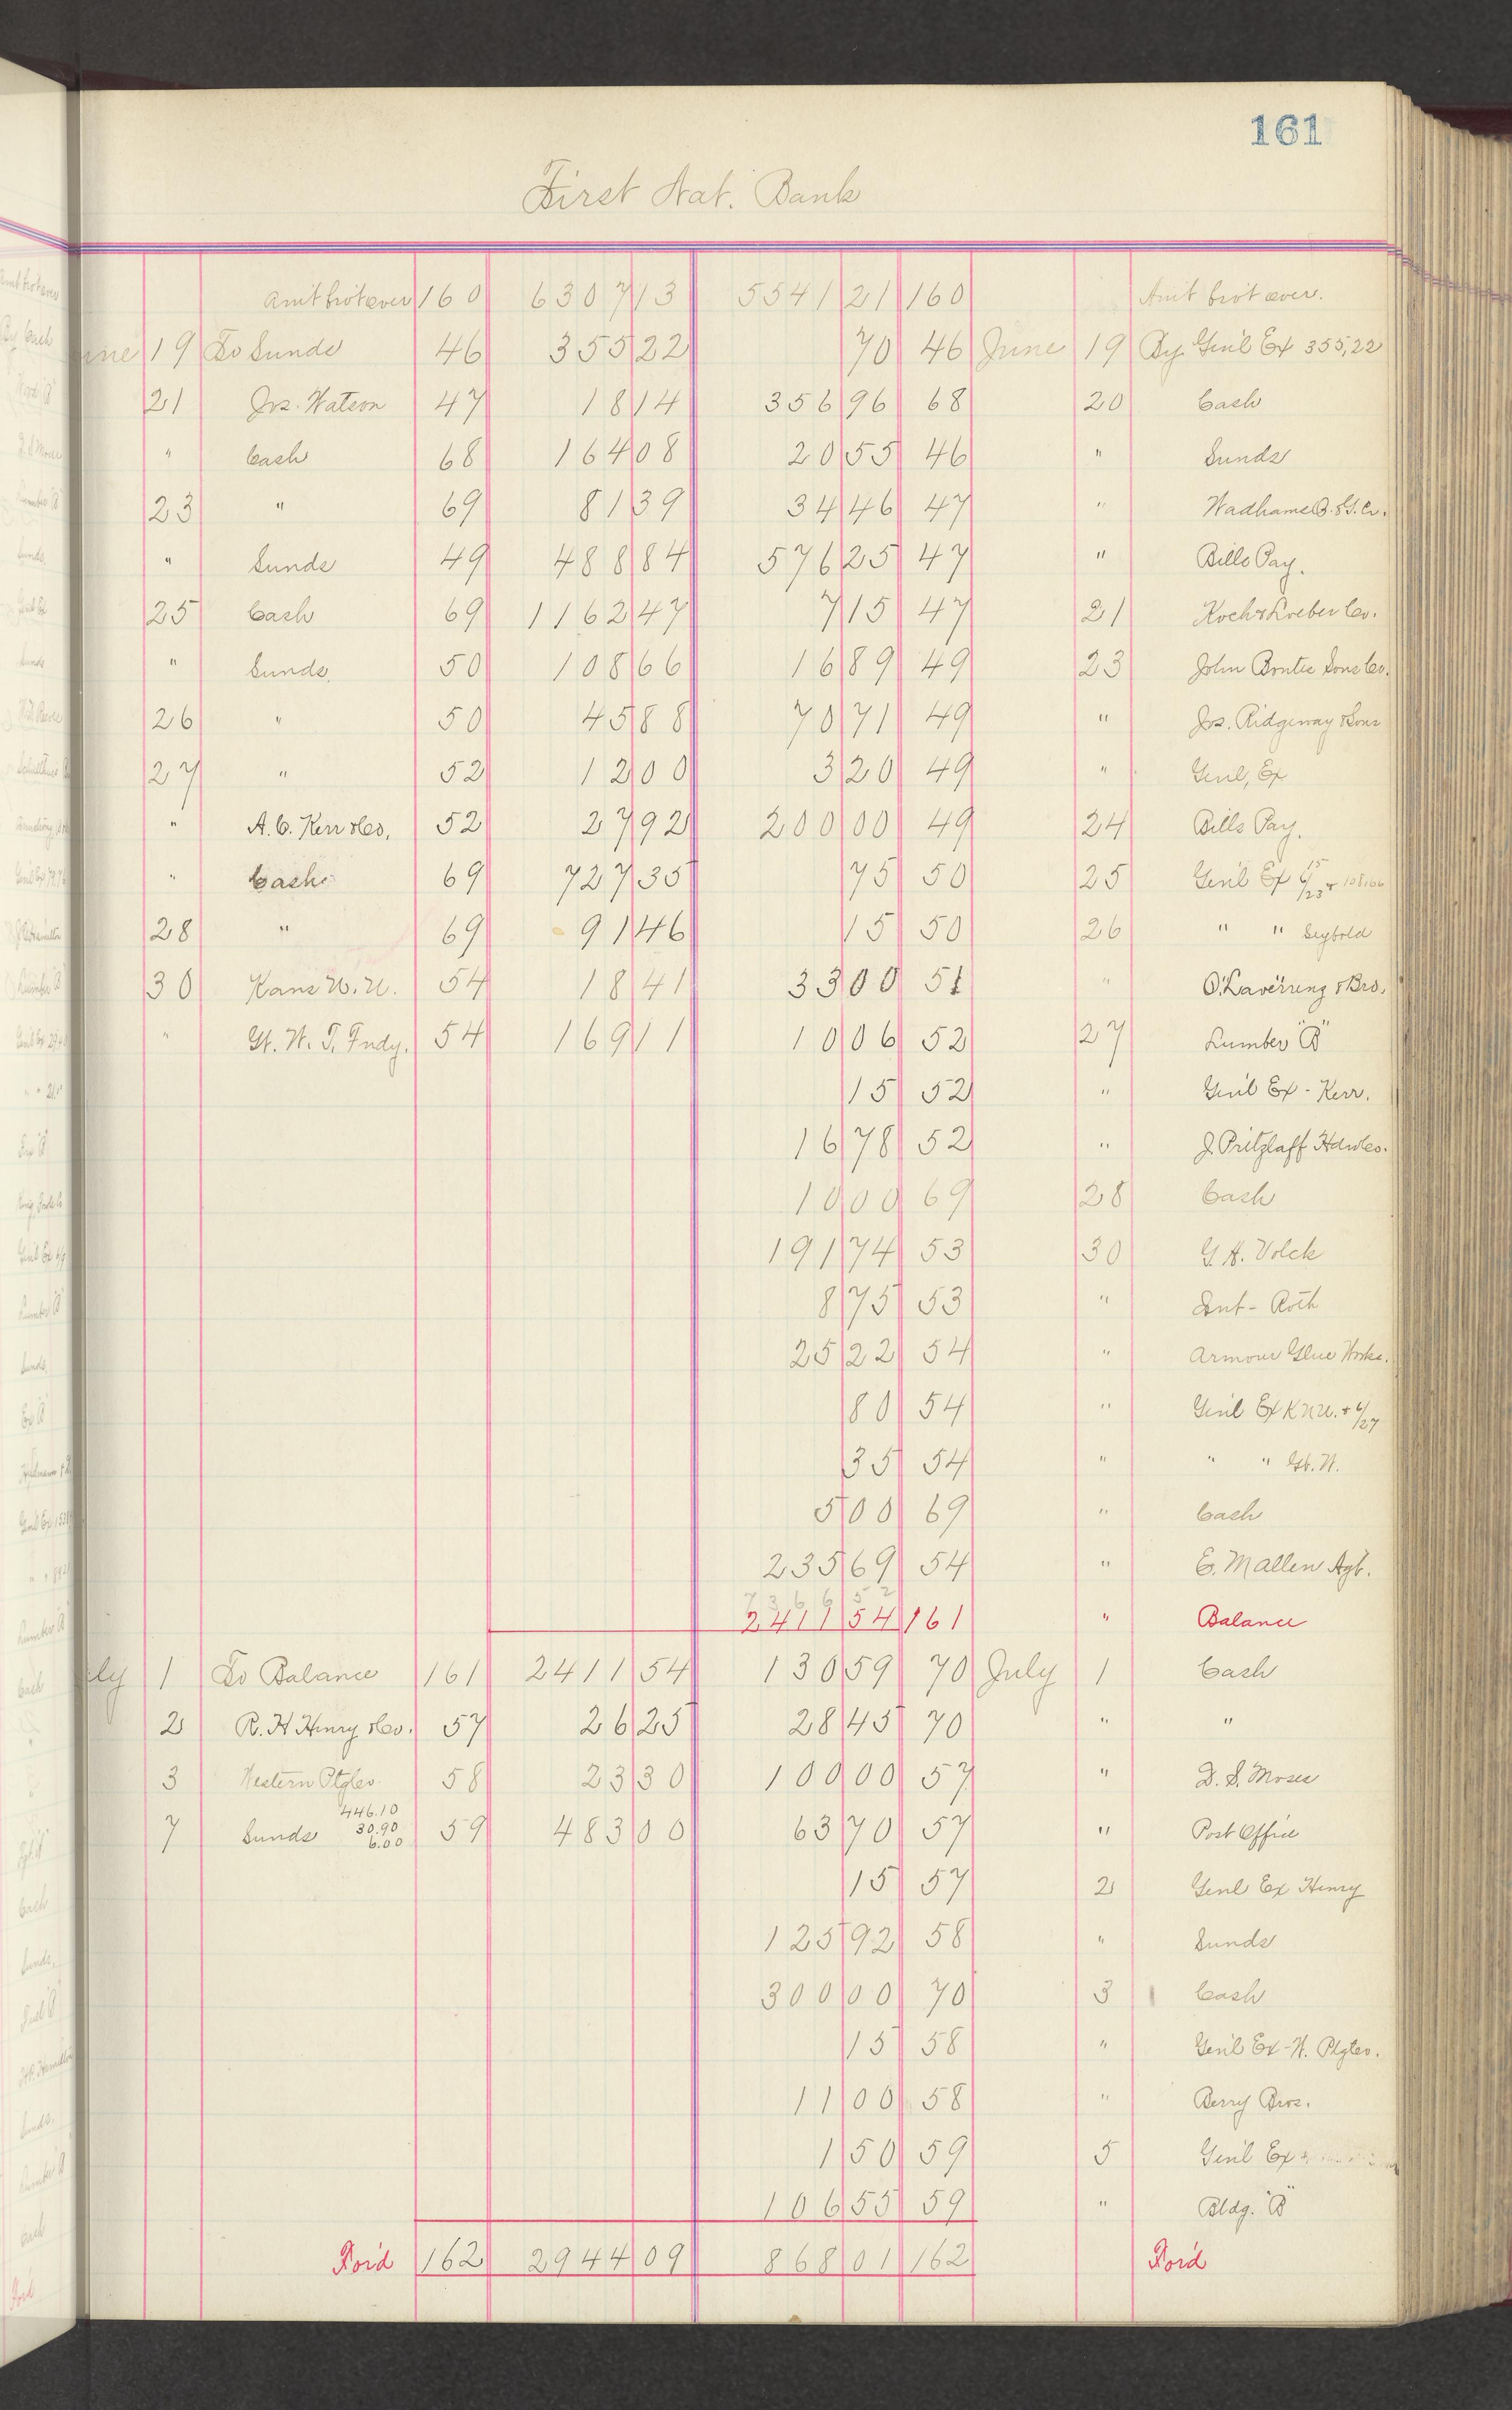 161
First Nat. Bank
Am't bro't over 160 6307 13 5541 21 160 Am't bro't over.
June 19 To Sunds 46 355 22 70 46 June 19 By Gen'l Ex 355.22
21 Jos. Watson 47 18 14 356 96 68 20 Cash
" Cash 68 164 08 20 55 46 " Sunds
23 " 69 81 39 34 46 47 " Wadhams
" Sunds 49 488 84 576 25 47 " Bills Pay.
25 Cash 69 1162 47 7 15 47 21 Koch & Loeber Co.
" Sunds. 50 108 66 16 89 49 23 John Sons Co.
26 " 50 45 88 70 71 49 " Jos. Ridgeway & Sons
27 " 52 12 00 3 20 49 " Gen'l, Ex
" A. C. Kerr & Co. 52 27 92 200 00 49 24 Bills Pay.
" Cash 69 727 35 75 50 25 Gen'l Ex 108.66
28 " 69 91 46 15 50 26 " " Seybold
30 Kans N. U. 54 18 41 33 00 51 " & Bro.
" Gt. W. T. Fndy. 54 169 11 10 06 52 27 Lumber "B"
15 52 " Gen'l Ex - Kerr.
16 78 52 " J. Pritzlaff Hdw Co.
10 00 69 28 Cash
191 74 53 30 G. H. Volck
8 75 53 " Int - Roth
25 22 54 " Armour Glue Works.
80 54 " Gen'l Ex K N U. + 6/27
35 54 " " " Gt. W.
5 00 69 " Cash
235 69 54 " E. Mallen Agt.
7366 52
2411 54 161 " Balance
July 1 To Balance 161 2411 54 130 59 70 July 1 Cash
2 R. H Henry & Co. 57 26 25 28 45 70 " "
3 Western Ptg Co. 58 23 30 100 00 57 " D. S. Moses
7 Sunds 446.10 30.90 6.00 59 483 00 63 70 57 " Post Office
15 57 2 Gen'l Ex Henry
125 92 58 " Sunds
300 00 70 3 Cash
15 58 " Gen'l Ex - W. Ptg Co.
11 00 58 " Berry Bros.
1 50 59 5 Gen'l Ex
106 55 59 " Bldg. "B"
For'd 162 2944 09 868 01 162 For'd